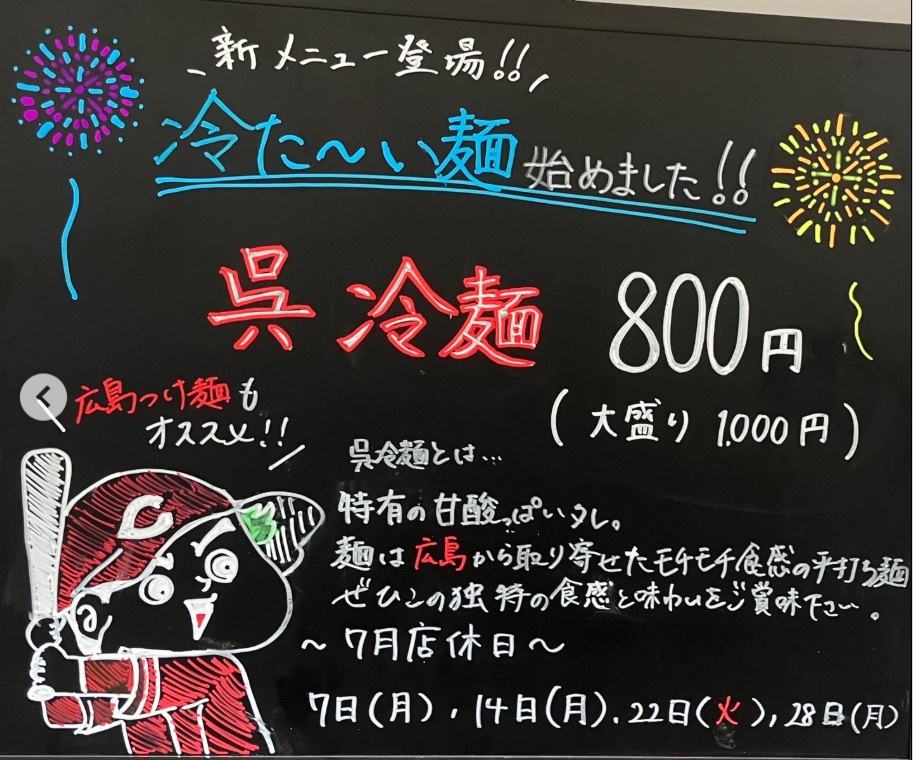 新メニュー登場!!
冷た〜い麺始めました!!
呉冷麺 800円
(大盛り 1,000円)
広島つけ麺も
オススメ!!
呉冷麺とは…
特有の甘酸っぱいタレ。
麺は広島から取り寄せたモチモチ食感の平打ち麺
ぜひこの独特の食感と味わいをご賞味下さい。
〜7月店休日〜
7日(月),14日(月),22日(火),28日(月)
C